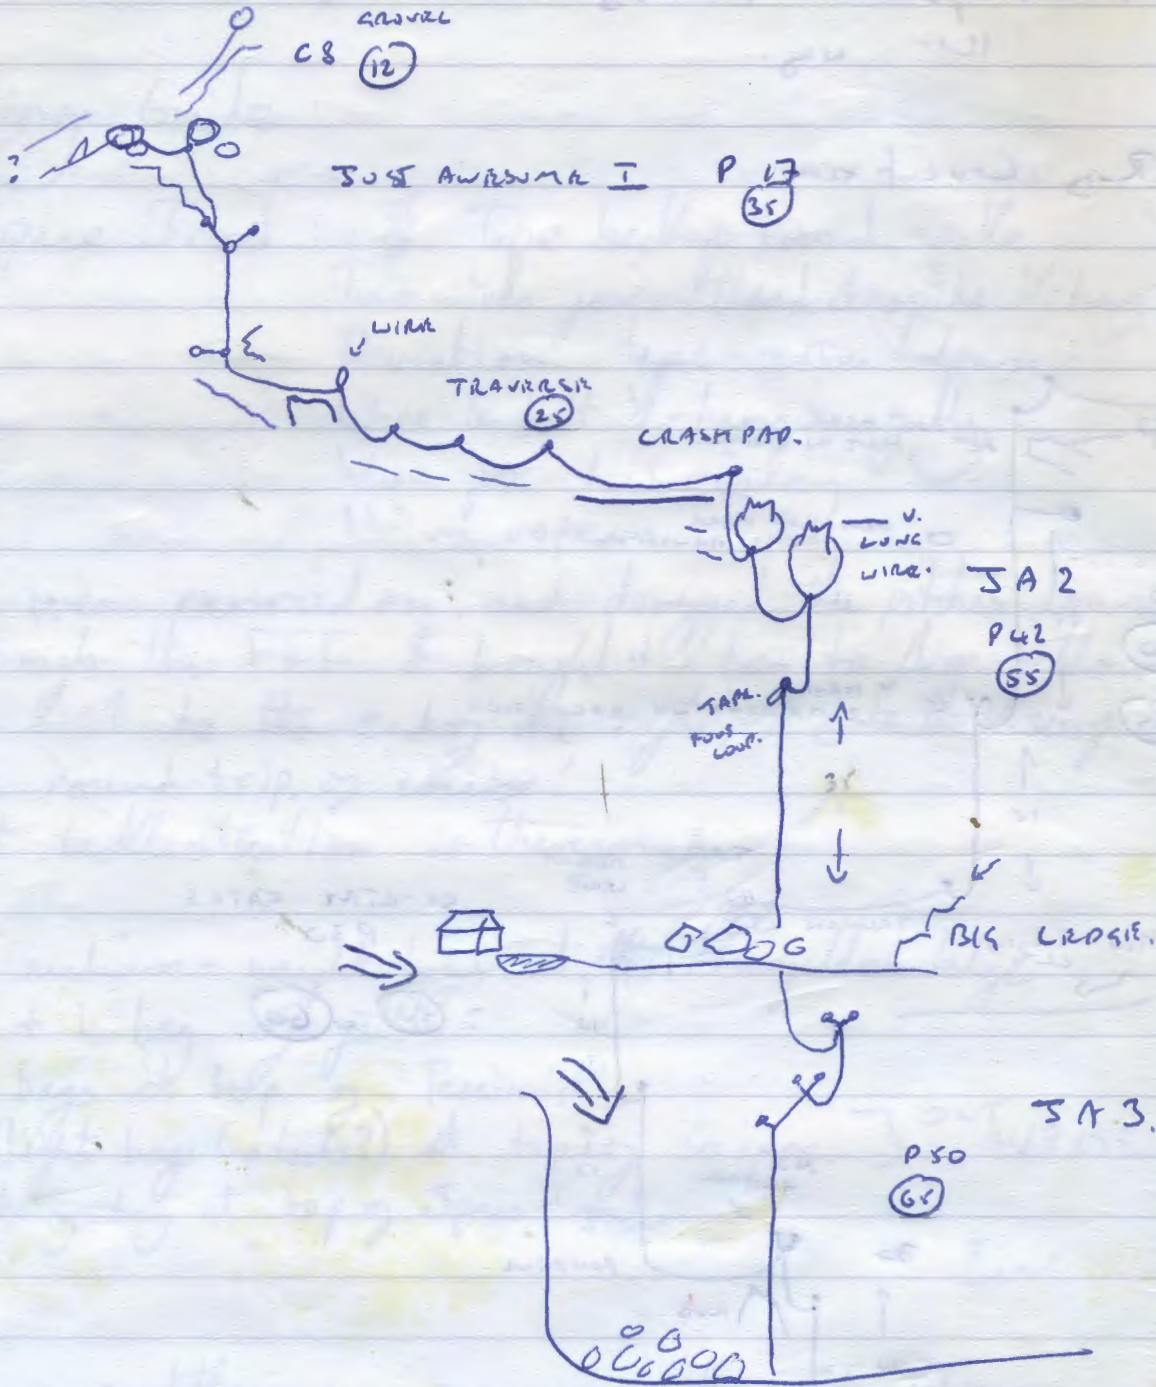 GROVEL
C8 12
?
JUST AWESOME I P 17
35
WIRE
TRAVERSE
25
CRASH PAD.
V.
LONG
WIRE.
JA2
P42
55
TAPE.
FOOT
LOOP.
35
BIG LEDGE.
JA3.
P50
65